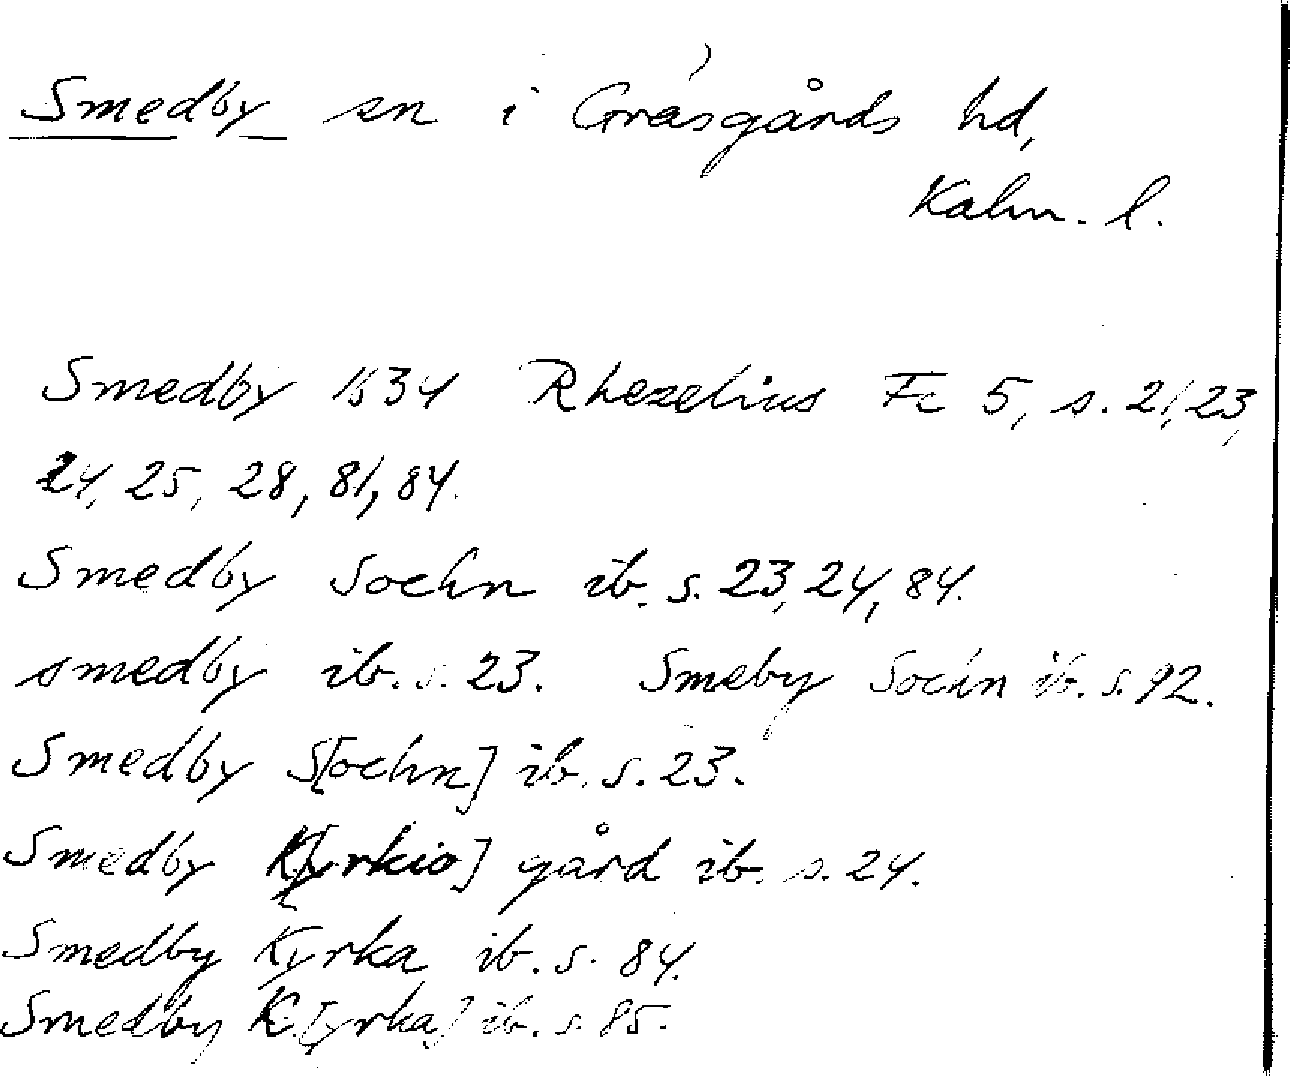 Smedby sn i Gräsgårds hd,
Kalm. l.
Smedby 1634 Rhezelius Fc 5, s. 21, 23,
24, 25, 28, 81, 84.
Smedby Sochn ib. s. 23, 24, 84.
smedby ib. s. 23. Smeby Sochn ib. s. 92.
Smedby S[ochn] ib. s. 23.
Smedby K[yrkio] gård ib. s. 24.
Smedby Kyrka ib. s. 84.
Smedby K[yrka] ib. s. 85.